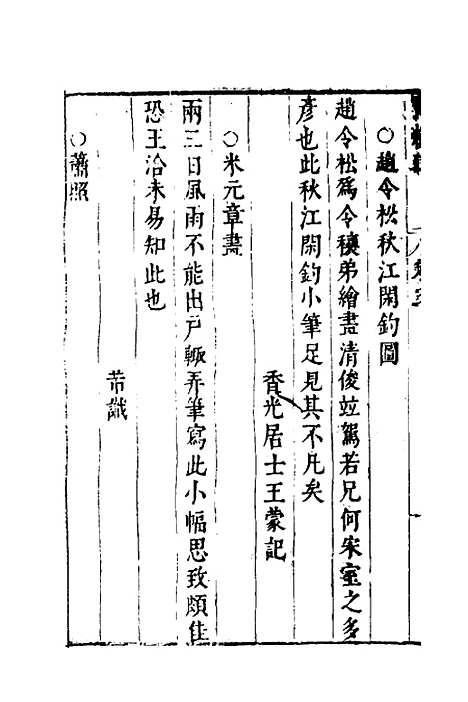 ○趙令松秋江閑釣圖
趙令松為令穰弟繪畫清俊竝駕若兄何宋室之多
彥也此秋江閑釣小筆足見其不凡矣
香光居士王蒙記
○米元章畫
兩三日風雨不能出戶輙弄筆寫此小幅思致頗佳
恐王洽未易知此也
芾識
○蕭照